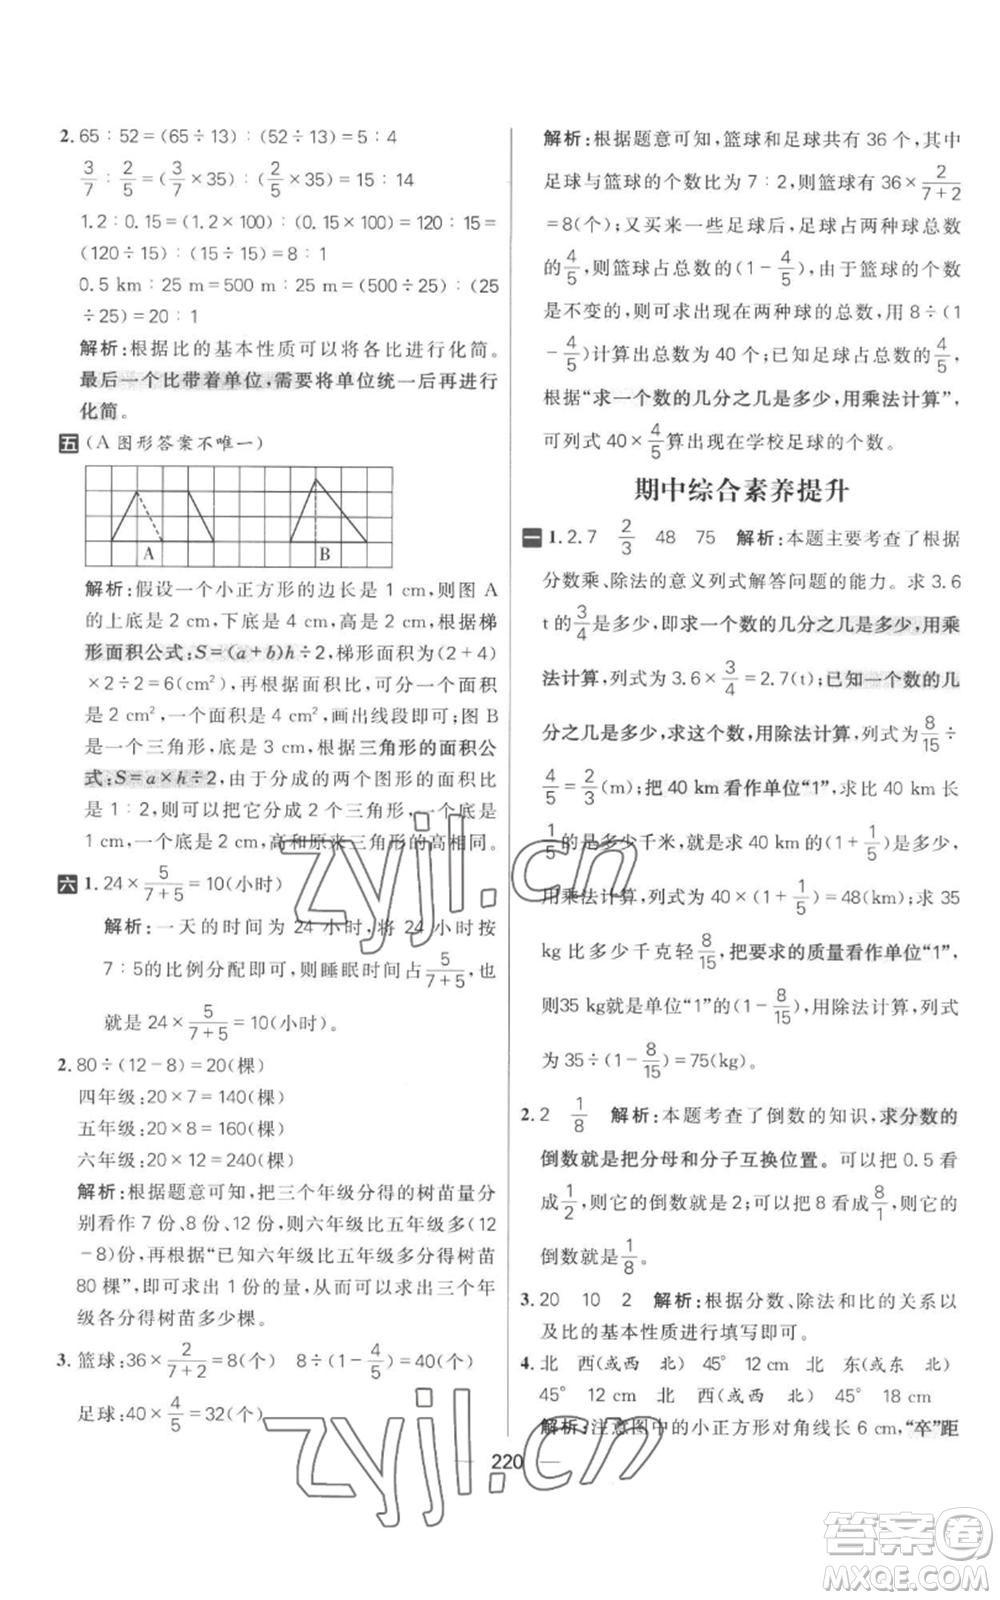 2. 65∶52=(65÷13)∶(52÷13)=5∶4
3/7∶2/5=(3/7×35)∶(2/5×35)=15∶14
1.2∶0.15=(1.2×100)∶(0.15×100)=120∶15=
(120÷15)∶(15÷15)=8∶1
0.5 km∶25 m=500 m∶25 m=(500÷25)∶(25
÷25)=20∶1
解析:根据比的基本性质可以将各比进行化简。
最后一个比带着单位,需要将单位统一后再进行
化简。
五 (A 图形答案不唯一)
A B
解析:假设一个小正方形的边长是 1 cm,则图 A
的上底是 2 cm,下底是 4 cm,高是 2 cm,根据梯
形面积公式:S=(a+b)h÷2,梯形面积为(2+4)
×2÷2=6(cm²),再根据面积比,可分一个面积
是 2 cm²,一个面积是 4 cm²,画出线段即可;图 B
是一个三角形,底是 3 cm,根据三角形的面积公
式:S=a×h÷2,由于分成的两个图形的面积比
是 1∶2,则可以把它分成 2 个三角形,一个底是
1 cm,一个底是 2 cm,高和原来三角形的高相同。
六 1. 24×5/(7+5)=10(小时)
解析:一天的时间为 24 小时,将 24 小时按
7∶5的比例分配即可,则睡眠时间占5/(7+5),也
就是 24×5/(7+5)=10(小时)。
2. 80÷(12-8)=20(棵)
四年级:20×7=140(棵)
五年级:20×8=160(棵)
六年级:20×12=240(棵)
解析:根据题意可知,把三个年级分得的树苗量分
别看作 7 份、8 份、12 份,则六年级比五年级多(12
-8)份,再根据“已知六年级比五年级多分得树苗
80 棵”,即可求出 1 份的量,从而可以求出三个年
级各分得树苗多少棵。
3. 篮球:36×2/(7+2)=8(个) 8÷(1-4/5)=40(个)
足球:40×4/5=32(个)
解析:根据题意可知,篮球和足球共有 36 个,其中
足球与篮球的个数比为 7∶2,则篮球有 36×2/(7+2)
=8(个);又买来一些足球,足球占两种球总数
的4/5,则篮球占总数的(1-4/5),由于篮球的个数
是不变的,可求出现在两种球的总数,用 8÷(1
-4/5)计算出总数为 40 个;已知足球占总数的4/5,
根据“求一个数的几分之几是多少,用乘法计算”,
可列式 40×4/5算出现在学校足球的个数。
期中综合素养提升
一 1. 2.7 2/3 48 75 解析:本题主要考查了根据
分数乘、除法的意义列式解答问题的能力。求 3.6
t 的3/4是多少,即求一个数的几分之几是多少,用乘
法计算,列式为 3.6×3/4=2.7(t);已知一个数的几
分之几是多少,求这个数,用除法计算,列式为8/15÷
4/5=2/3(m);把 40 km看作单位“1”,求比 40 km 长
1/5的是多少千米,就是求 40 km的(1+1/5)是多少,
用乘法计算,列式为 40×(1+1/5)=48(km);求 35
kg比多少千克轻8/15,把要求的质量看作单位“1”,
则35 kg就是单位“1”的(1-8/15),用除法计算,列式
为 35÷(1-8/15)=75(kg)。
2. 2 1/8 解析:本题考查了倒数的知识,求分数的
倒数就是把分母和分子互换位置。可以把 0.5 看
成1/2,则它的倒数就是 2;可以把 8 看成8/1,则它的
倒数就是1/8。
3. 20 10 2 解析:根据分数、除法和比的关系以
及比的基本性质进行填写即可。
4. 北 西(或西 北) 45° 12 cm 北 东(或东 北)
45° 12 cm 北 西(或西 北) 45° 18 cm
解析:注意图中的小正方形对角线长 6 cm,“卒”距
220
zyjl.cn
zyjl.cn
答案圈
MXQE.COM